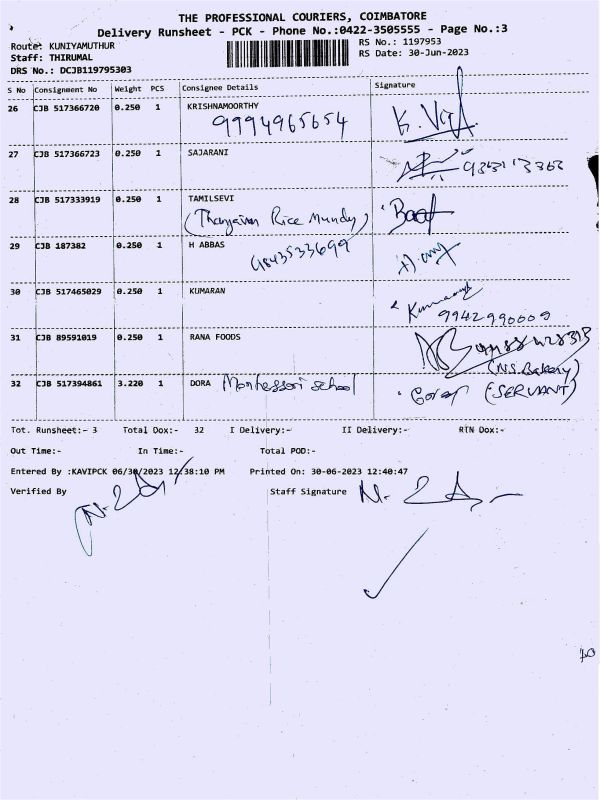 THE PROFESSIONAL COURIERS, COIMBATORE
Delivery Runsheet - PCK - Phone No.:0422-3505555 - Page No.:3
Route: KUNIYAMUTHUR RS No.: 1197953
Staff: THIRUMAL RS Date: 30-Jun-2023
DRS No.: DCJB119795303
S No Consignment No Weight PCS Consignee Details Signature
26 CJB 517366720 0.250 1 KRISHNAMOORTHY
9994965654
27 CJB 517366723 0.250 1 SAJARANI
28 CJB 517333919 0.250 1 TAMILSEVI
(Thanjaivur Rice Mundy)
29 CJB 187382 0.250 1 H ABBAS
9843533699
30 CJB 517465029 0.250 1 KUMARAN
9942990009
31 CJB 89591019 0.250 1 RANA FOODS
(N.S. Bakery)
32 CJB 517394861 3.220 1 DORA Montessori school (SERVANT)
Tot. Runsheet:- 3 Total Dox:- 32 I Delivery:- II Delivery:- RTN Dox:-
Out Time:- In Time:- Total POD:-
Entered By :KAVIPCK 06/30/2023 12:38:10 PM Printed On: 30-06-2023 12:40:47
Verified By Staff Signature